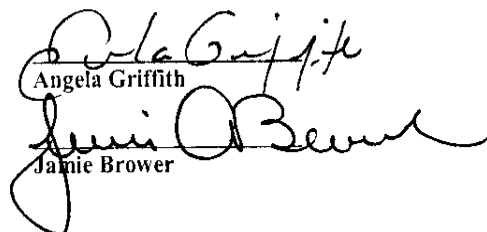 Angela Griffith
Angela Griffith
Jamie A Brower
Jamie Brower